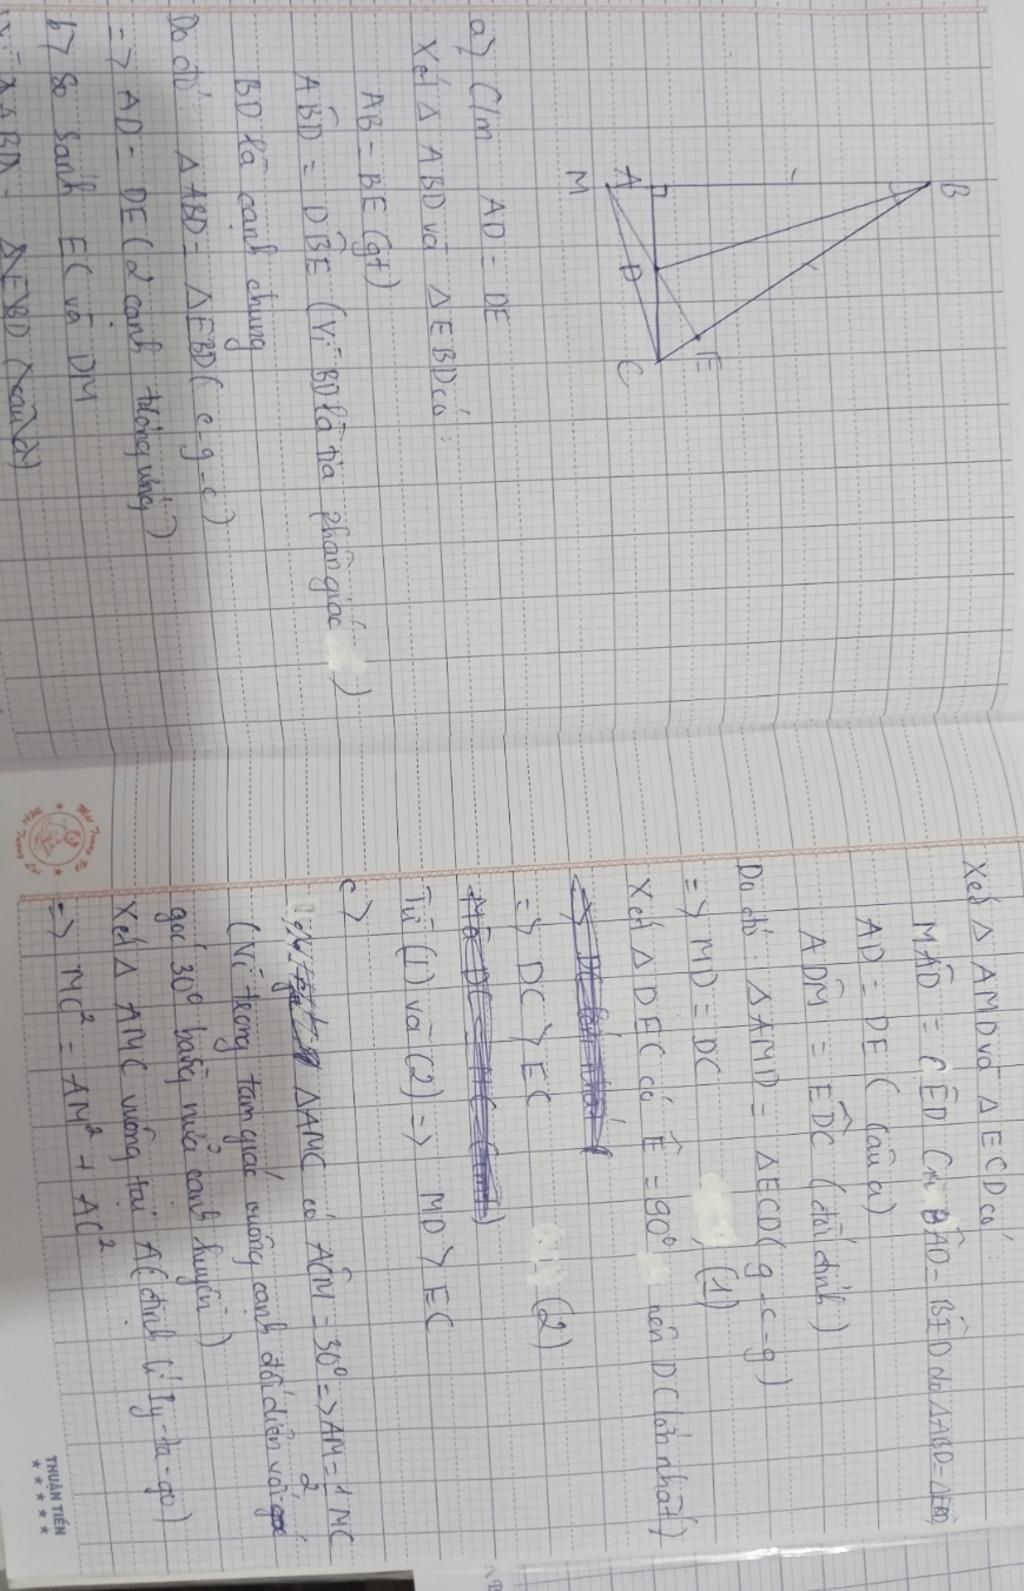 B
A
M
D
E
C
a) C/m AD = DE
Xét Δ ABD và Δ EBD có:
AB = BE (gt)
AB̂D = DB̂E (Vì BD là tia phân giác )
BD là cạnh chung
Do đó Δ ABD = Δ EBD (c-g-c)
=> AD = DE (2 cạnh tương ứng)
b) So sánh EC và DM
Vì Δ ABD = Δ EBD (câu a)
Xét Δ AMD và Δ ECD có:
MÂD = CÊD (Vì BÂD = BÊD do ΔABD = ΔEBD)
AD = DE (câu a)
AD̂M = ED̂C (đối đỉnh)
Do đó: ΔAMD = ΔECD (g-c-g)
=> MD = DC (1)
Xét Δ DEC có Ê = 90° nên DC lớn nhất)
=> DC > EC (2)
Từ (1) và (2) => MD > EC
c)
ΔAMC có AĈM = 30° => AM = 1/2 MC
(Vì trong tam giác vuông cạnh đối diện với
góc 30° bằng nửa cạnh huyền)
Xét Δ AMC vuông tại A (định lí Py-ta-go)
=> MC² = AM² + AC²
THUẬN TIẾN